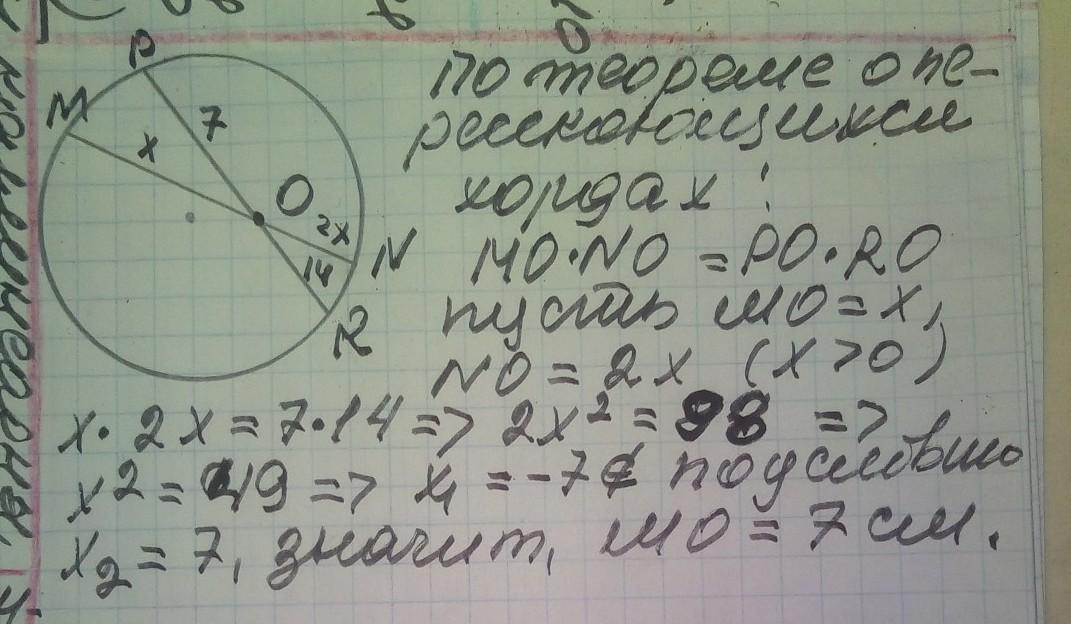 P
M
7
x
O
2x
N
14
R
По теореме о пе-
ресекающихся
хордах:
MO·NO = PO·RO
пусть MO = x,
NO = 2x (x > 0)
x·2x = 7·14 => 2x² = 98 =>
x² = 49 => x₁ = -7 ∉ по условию
x₂ = 7, значит, MO = 7 см.